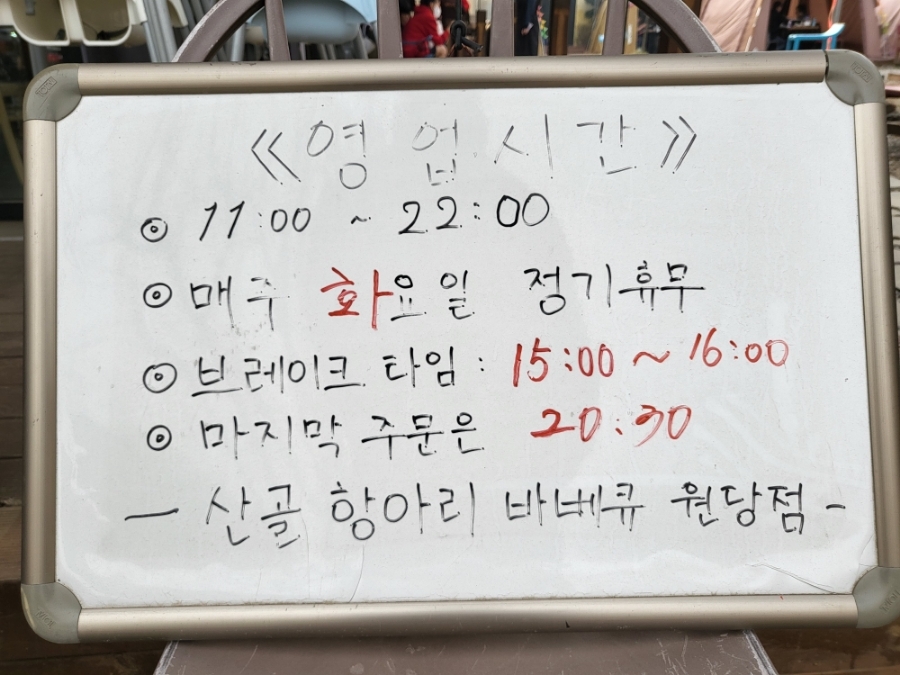 《영업시간》
⊙ 11:00 ~ 22:00
⊙ 매주 화요일 정기휴무
⊙ 브레이크 타임 : 15:00 ~ 16:00
⊙ 마지막 주문은 20:30
— 산골 항아리 바베큐 원당점 -